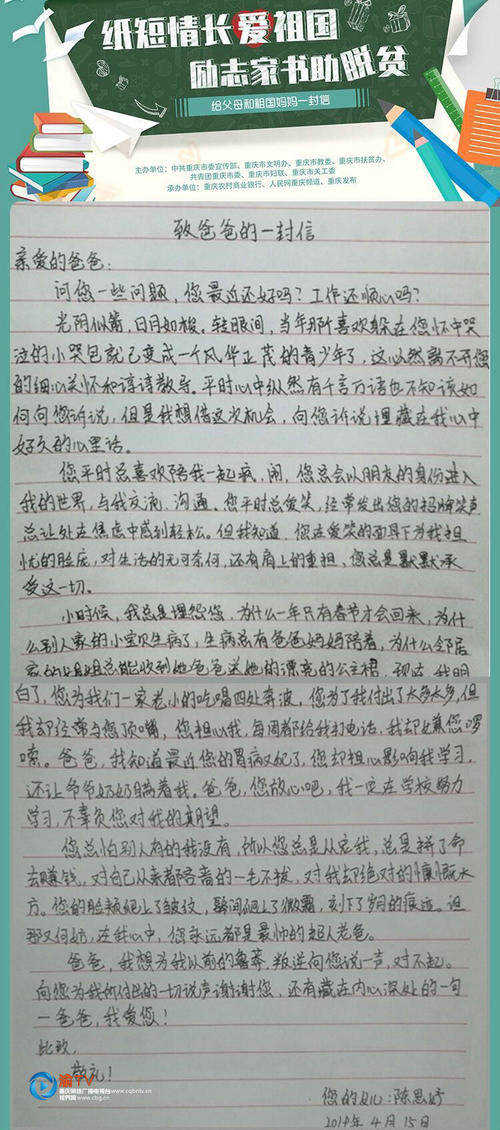 纸短情长爱祖国
励志家书助脱贫
给父母和祖国妈妈一封信
主办单位：中共重庆市委宣传部、重庆市文明办、重庆市教委、重庆市扶贫办、
共青团重庆市委、重庆市妇联、重庆市关工委
承办单位：重庆农村商业银行、人民网重庆频道、重庆发布
致爸爸的一封信
亲爱的爸爸：
问您一些问题，您最近还好吗？工作还顺心吗？
光阴似箭，日月如梭。转眼间，当年那所喜欢躲在您怀中哭
泣的小哭包就已变成一个风华正茂的青少年了，这必然离不开您
的细心关怀和谆谆教导。平时心中纵然有千言万语也不知该如
何向您诉说，但是我想借这次机会，向您诉说埋藏在我心中
好久的心里话。
您平时总喜欢陪我一起疯，闹，您总会以朋友的身份进入
我的世界，与我交流、沟通。您平时总爱笑，经常发出您的招牌笑声
总让处在焦虑中感到轻松。但我知道，您在爱笑的面具下为我担
忧的脸庞，对生活的无可奈何，还有肩上的重担，您总是默默承
受这一切。
小时候，我总是埋怨您，为什么一年只有春节才会回来，为什
么别人家的小宝贝生病了，生病总有爸爸妈妈陪着，为什么邻居
家的姐姐总能收到她爸爸送她的漂亮的公主裙，现在，我明
白了，您为我们一家老小的吃喝四处奔波，您为了我付出了太多太多，但
我却经常与您顶嘴，您担心我，每周都给我打电话，我却还嫌您啰
嗦。爸爸，我知道最近您的胃病又犯了，您却担心影响我学习，
还让爷爷奶奶瞒着我。爸爸，您放心吧，我一定在学校努力
学习，不辜负您对我的期望。
您总怕别人有的我没有，所以您总是从宽我，总是拼了命
去赚钱，对自己从来都陪着的一毛不拔，对我却绝对的慷慨大
方。您的脸颊爬上了皱纹，鬓间爬上了微霜，刻下了岁月的痕迹。但
那又何妨，在我心中，您永远都是最帅的超人老爸。
爸爸，我想为我以前的鲁莽、叛逆向您说一声，对不起。
向您为我所付出的一切说声谢谢您，还有藏在内心深处的一句
—爸爸，我爱您！
此致
敬礼！
您的女儿：陈思妤
2019年4月15日
渝TV
重庆网络广播电视台 www.cqbntv.cn
视界网 www.cbg.cn